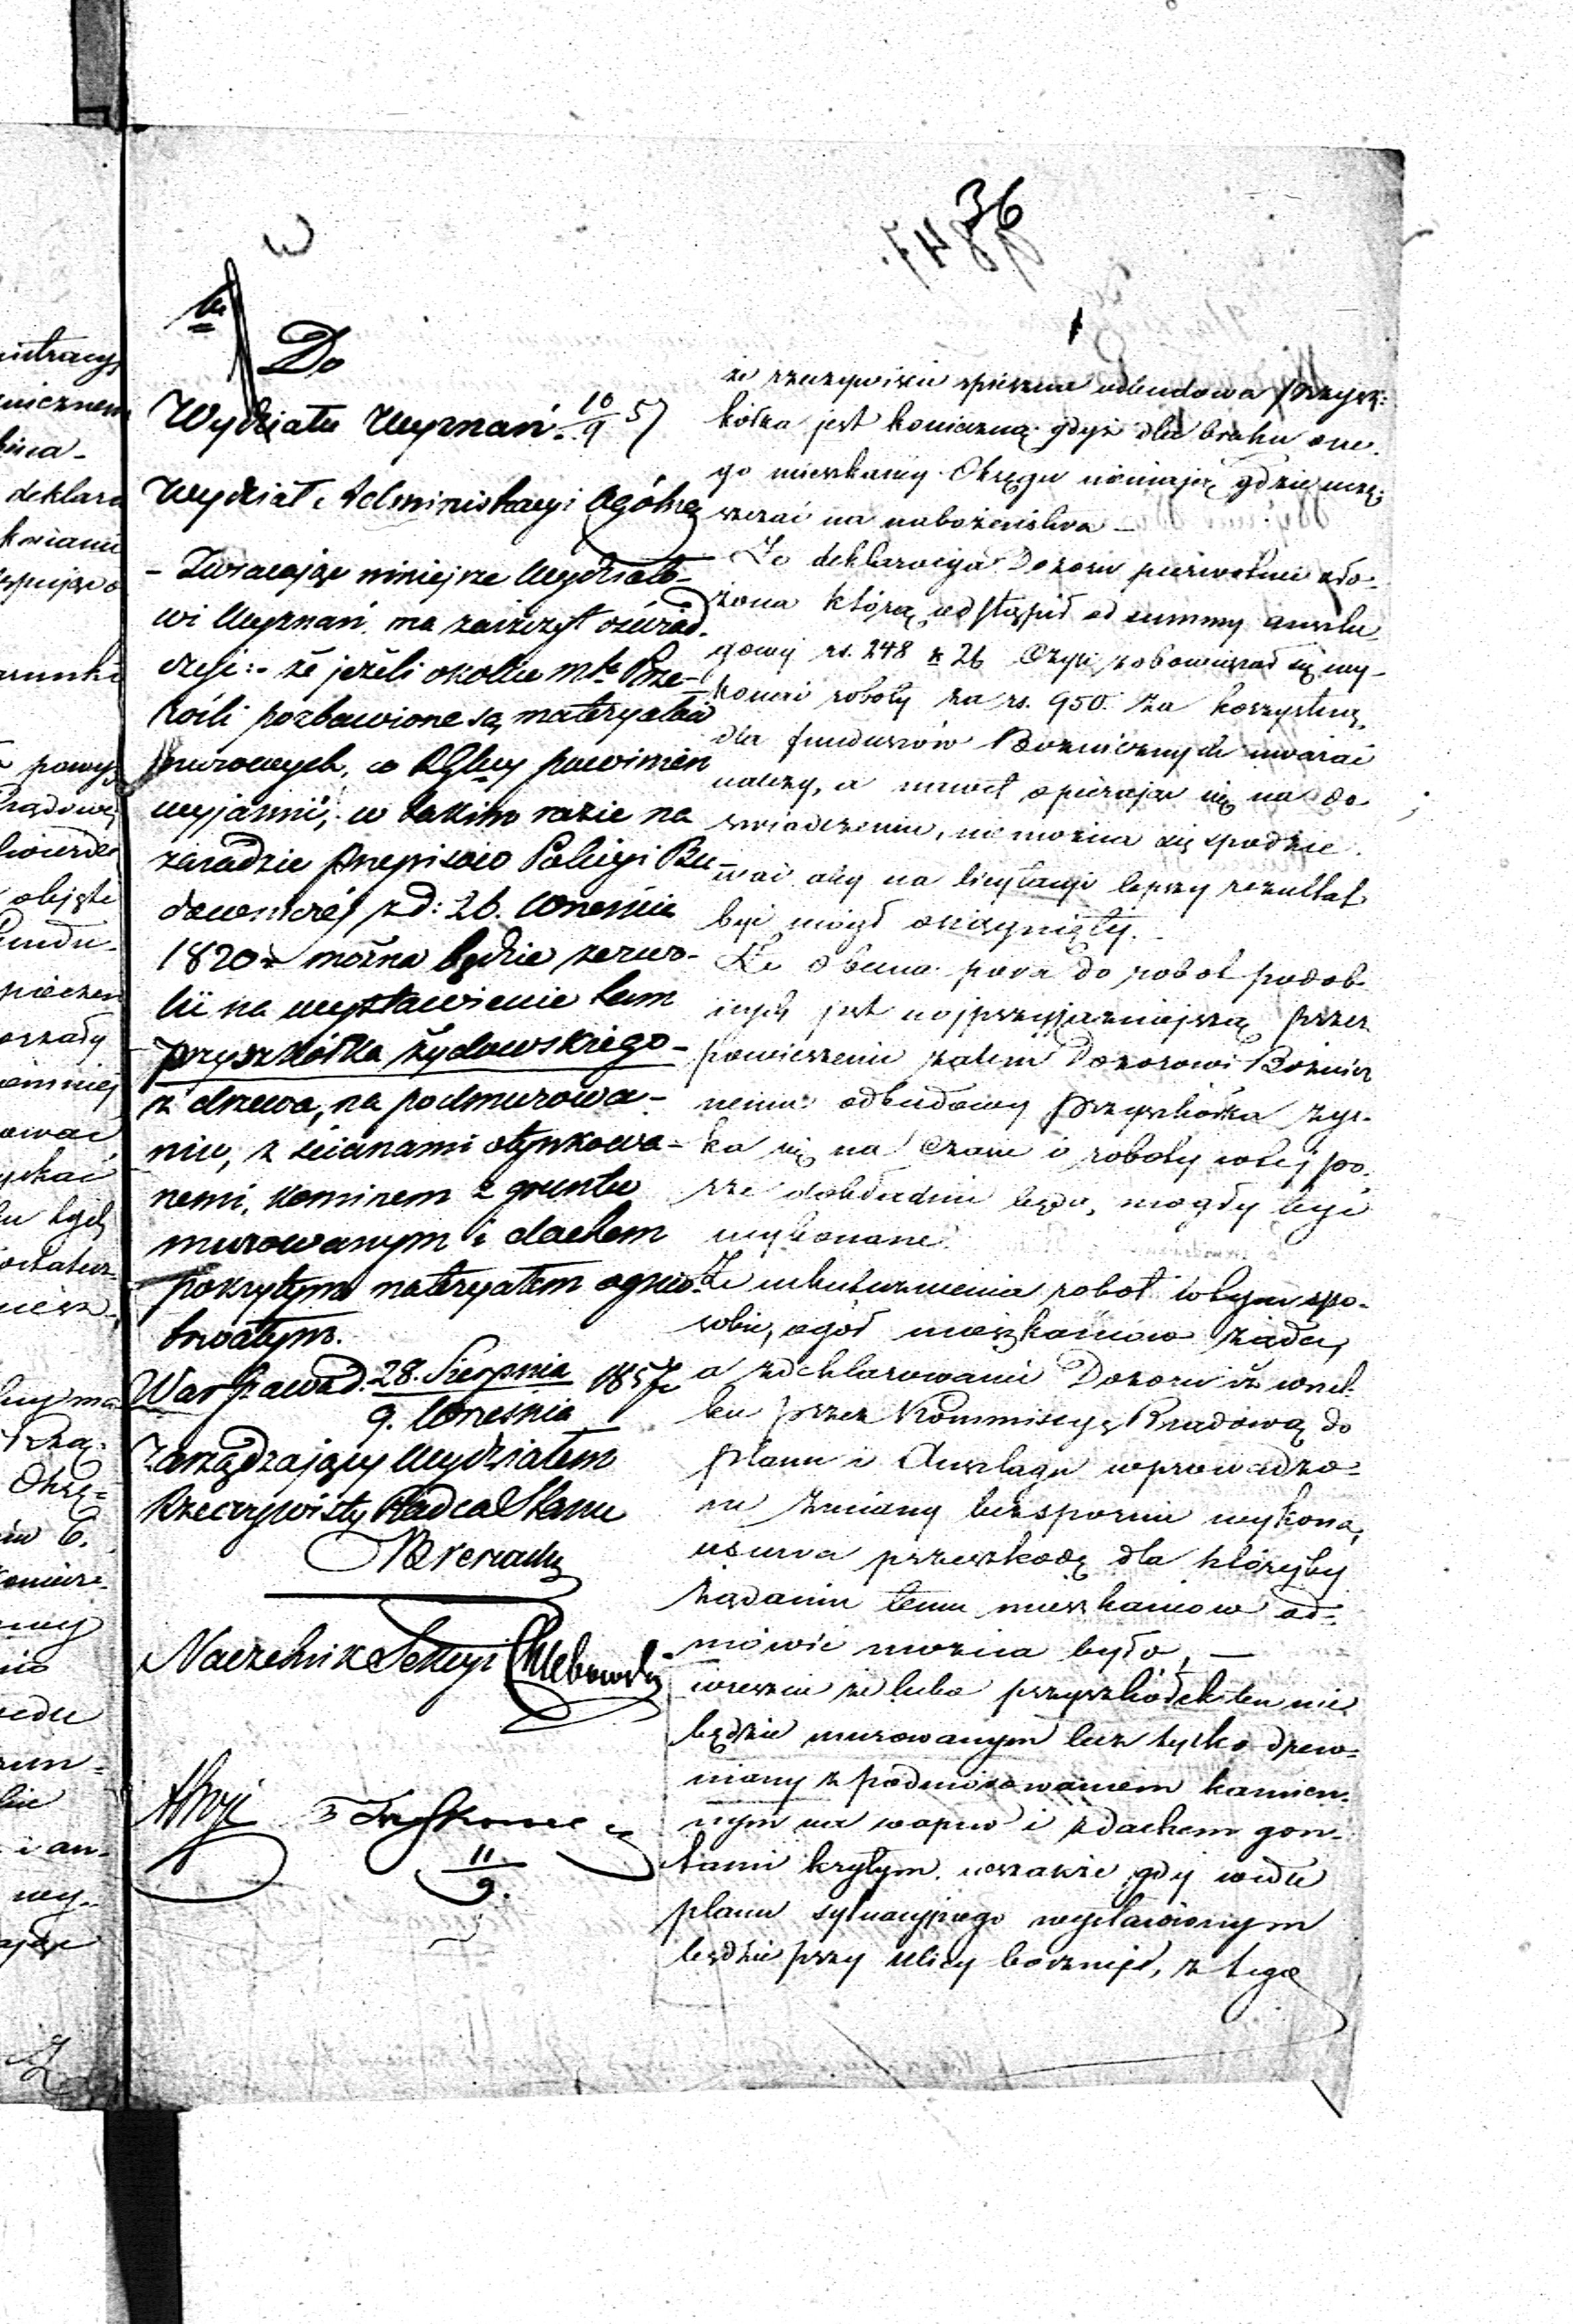 36
Do
Wydziału Wyznań. 10/9 57
Wydział Administracyi Ogólnej
- Zwracając niniejsze Wydziało-
wi Wyznań, ma zaszczyt oświad-
czyć: że jeżeli okolice mta Prze-
rośli pozbawione są materyałów
murowych, co RGlny powinien
wyjaśnić, w takim razie na
zasadzie przepisów Policyi Bu-
downiczéj z d: 26. Września
1820 r można będzie zezwo-
lić na wystawienie tam
przyszkółka żydowskiego -
z drzewa, na podmurowa-
niu, z ścianami otynkowa-
nemi, kominem z gruntu
murowanym i dachem
pokrytym materyałem ognio-
trwałym.
Warszawa d. 28. Sierpnia 1857 r
9. Września
Zarządzający Wydziałem
Rzeczywisty Radca Stanu
Naczelnik Sekcyi Chlebowski
11/9.
że rzeczywiście spieszna odbudowa przysz-
kółka jest konieczną gdyż dla braku one-
go mieszkańcy Okręgu niemają gdzie uczę-
szczać na nabożeństwa -
Że deklaracya Dozoru pierwotnie zło-
żona którą odstąpił od summy anszla-
gowéj rs. 248 k 26 czyli zobowiązał się wy-
konać roboty za rs. 950. za korzystną
dla funduszów Bożniczych uważać
należy, a nawet opierając się na do-
świadczeniu, nie można się spodzie-
wać aby na licytacyi lepszy rezultat
być mógł osiągnięty.
Że obecna pora do robót podob-
nych jest najprzyjaźniejszą przez
powierzenie zatem Dozorowi Bożnicz
nemu odbudowy przyszkółka zys-
ka się na czasie i roboty w téj po-
rze dokładnie będą mogły być
wykonane.
Że uskutecznienia robót w tym spo-
sobie, ogół mieszkańców żąda,
a zdeklarowanie Dozoru iż wszel-
kie przez Kommissyę Rządową do
planu i Anszlagu wprowadzo-
ne zmiany bezspornie wykona,
usuwa przeszkodę dla któréjby
żądaniu temu mieszkańców od-
mówić można było, -
wreszcie że lubo przyszkółek ten nie
będzie murowanym lecz tylko drew-
niany z podmurowaniem kamien-
nym na wapno i z dachem gon-
tami krytym, wszakże gdy wedle
planu sytuacyjnego wystawionym
będzie przy ulicy bocznéj, z tego